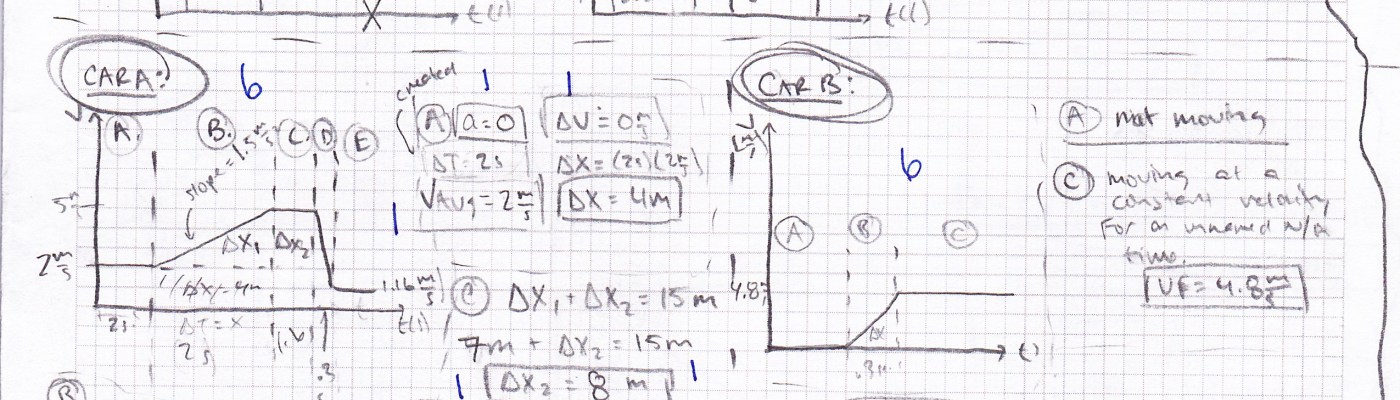 t(s)
t(s)
CAR A:
6
V
A.
B.
C
D
E
slope = 1.5 m/s²
5 m/s
2 m/s
ΔX₁
ΔX₂
1.16 m/s
t(s)
2s
ΔT = X
2s
1.6
.3
s
created
1
1
A
a = 0
ΔV = 0 m/s
ΔT = 2s
ΔX = (2s)(2 m/s)
VAvg = 2 m/s
ΔX = 4m
1
C
ΔX₁ + ΔX₂ = 15 m
7m + ΔX₂ = 15m
ΔX₂ = 8 m
1
1
B
CAR B:
V
(m/s)
6
A
B
C
4.8
ΔX
t()
A not moving
C moving at a
constant velocity
For an unnamed
time.
VF = 4.8 m/s